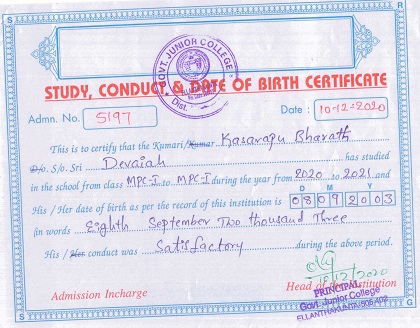 GOVT. JUNIOR COLLEGE
Dist.
STUDY, CONDUCT & DATE OF BIRTH CERTIFICATE
Admn. No. 5197 Date : 10-12-2020
This is to certify that the Kumari/Kumar Kasarapu Bharath
D/o. S/o. Sri Devaiah has studied
in the school from class MPC-I to MPC-I during the year from 2020 to 2021 and
D M Y
His / Her date of birth as per the record of this institution is 08 09 2003
in words Eighth September Two thousand Three
His / Her conduct was Satisfactory during the above period.
Admission Incharge Head of the Institution
PRINCIPAL
Govt. Junior College